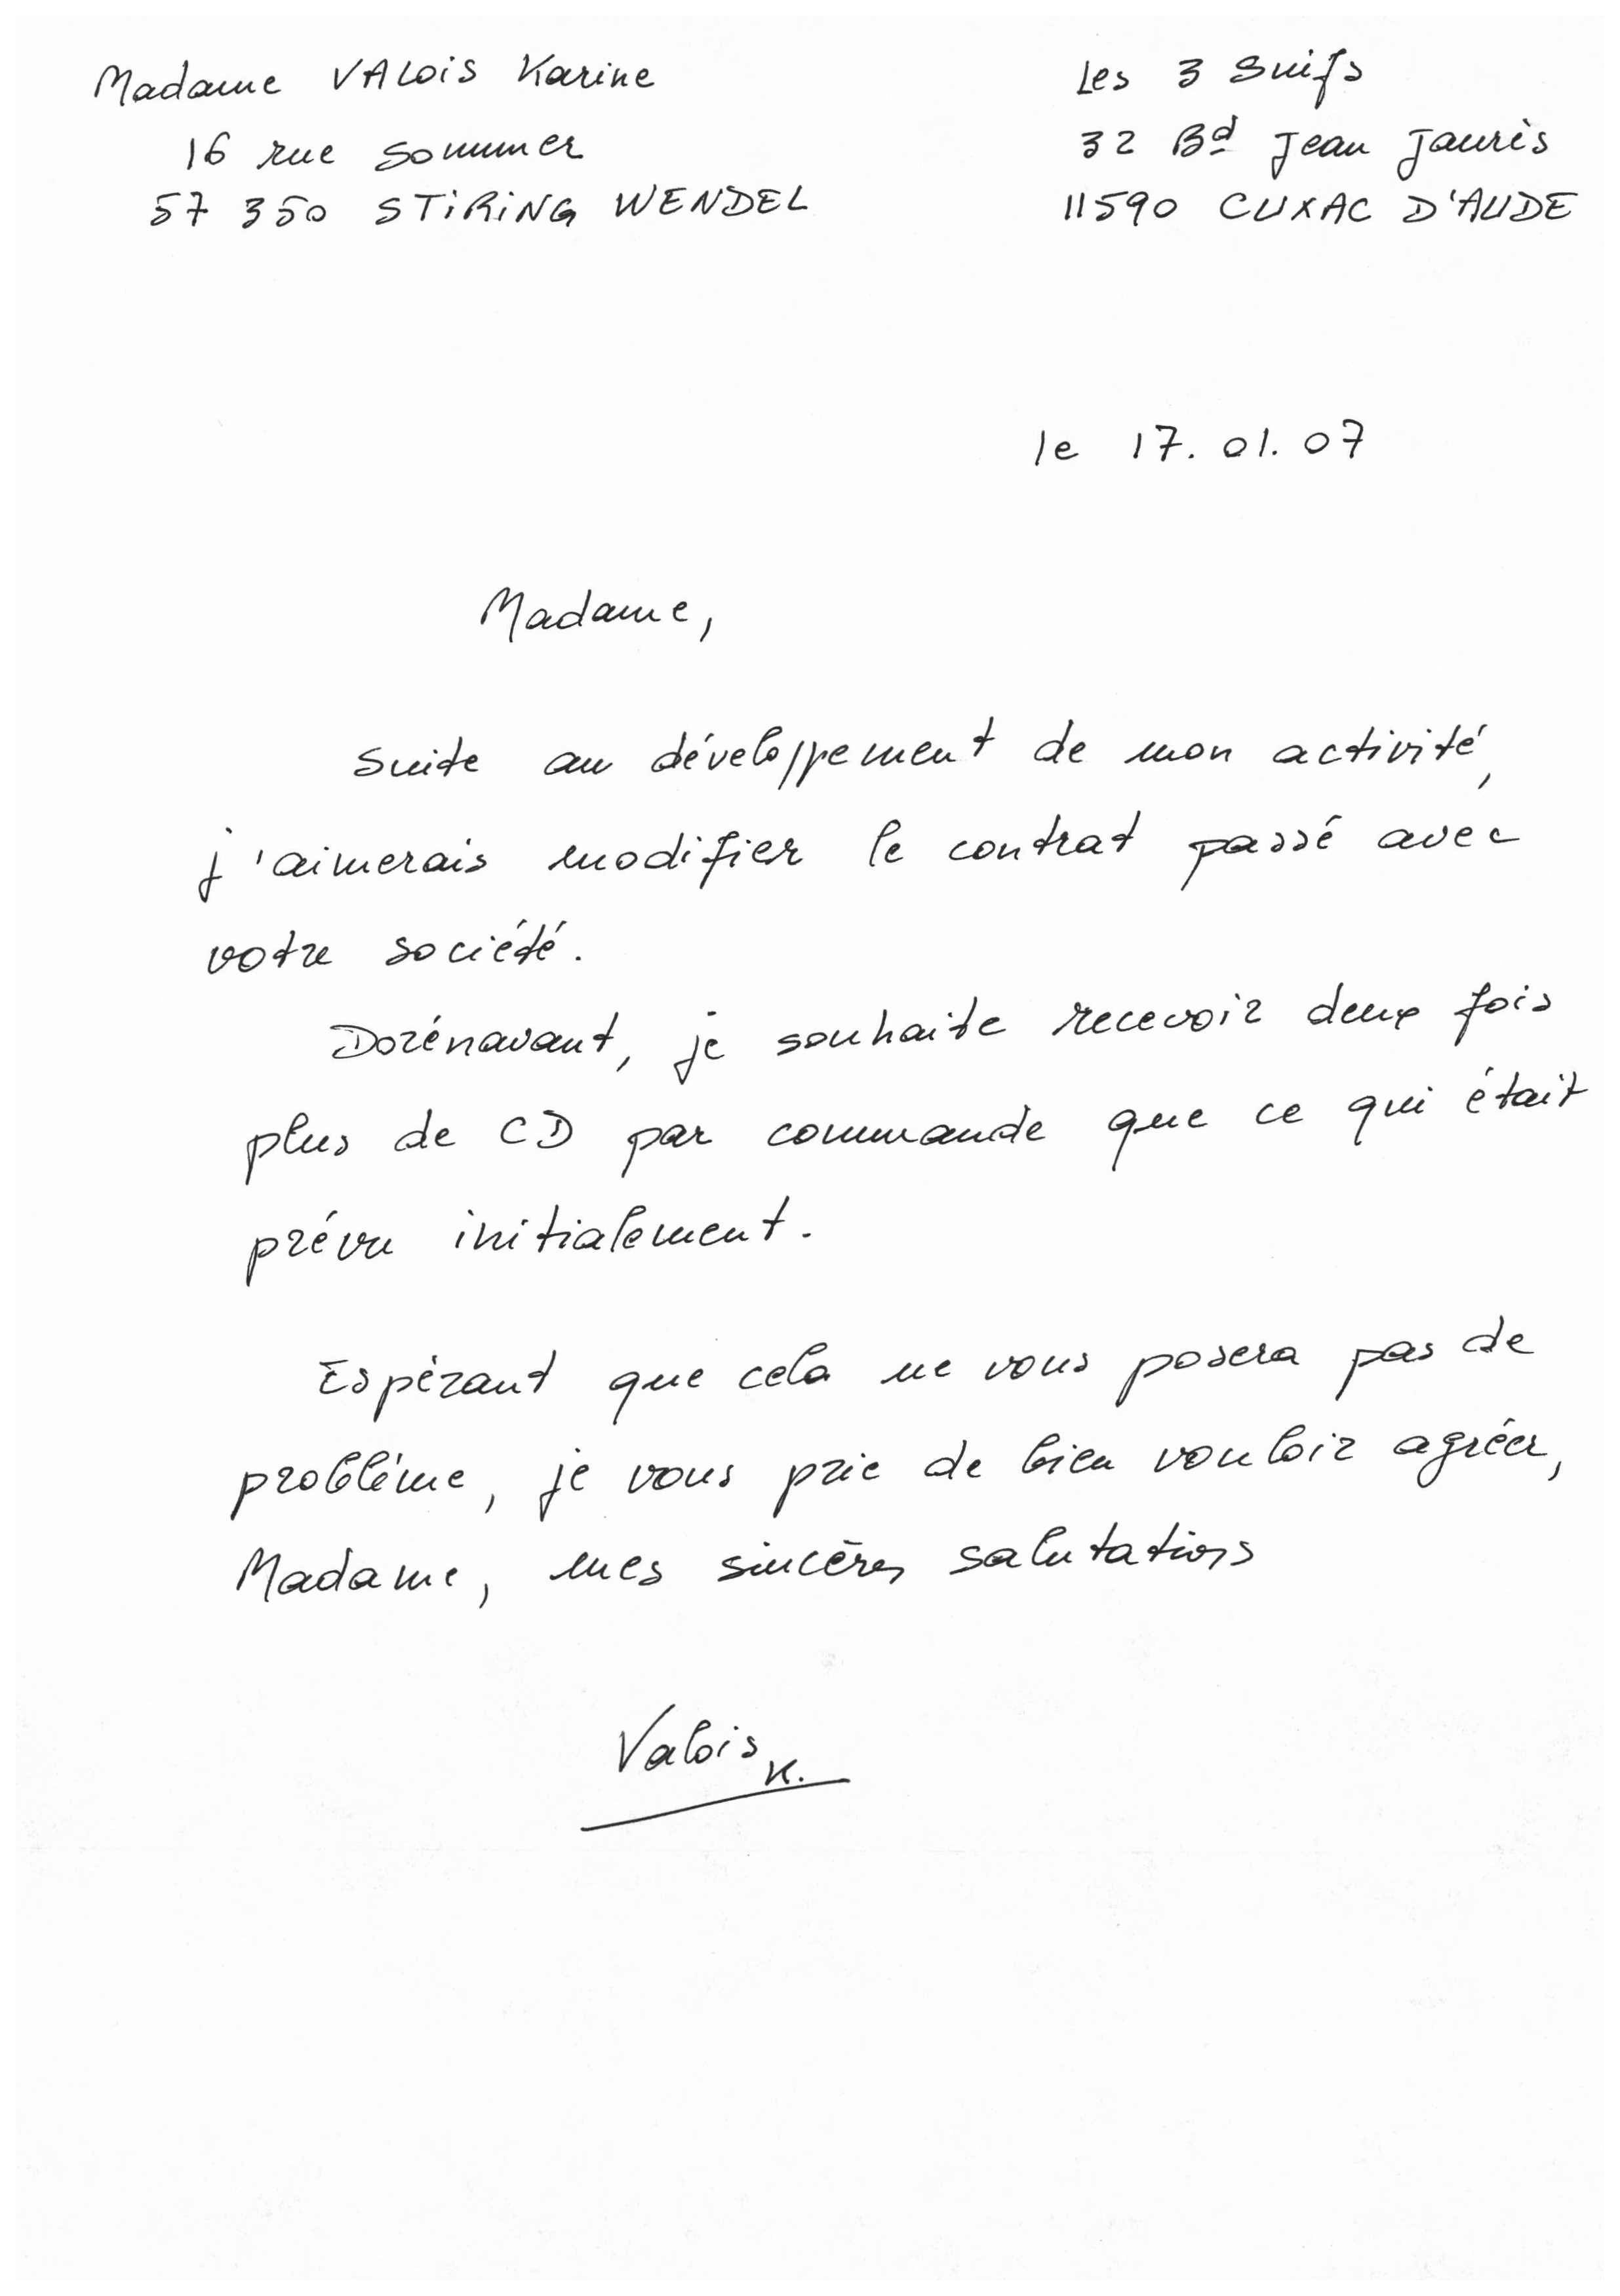 Madame VALOIS Karine
16 rue Sommer
57 350 STIRING WENDEL
Les 3 Suifs
32 Bd Jean Jaurès
11590 CUXAC D'AUDE
le 17.01.07
Madame,
Suite au développement de mon activité,
j'aimerais modifier le contrat passé avec
votre société.
Dorénavant, je souhaite recevoir deux fois
plus de CD par commande que ce qui était
prévu initialement.
Espérant que cela ne vous posera pas de
problème, je vous prie de bien vouloir agréer,
Madame, mes sincères salutations
Valois K.